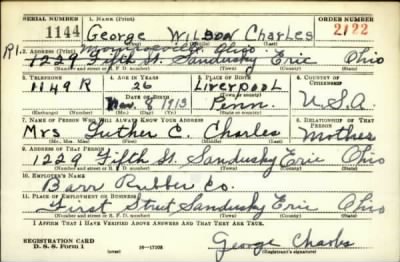 SERIAL NUMBER 1. NAME (Print) ORDER NUMBER
1144 George Wilson Charles 2122
(First) (Middle) (Last)
R1. Monroeville, Ohio
2. ADDRESS (Print)
1229 Fifth St. Sandusky Erie Ohio
(Number and street or R. F. D. number) (Town) (County) (State)
3. TELEPHONE 4. AGE IN YEARS 5. PLACE OF BIRTH 6. COUNTRY OF CITIZENSHIP
1149 R 26 Liverpool
DATE OF BIRTH
Nov. 8 1913 Penn. U.S.A.
(Exchange) (Number) (Mo.) (Day) (Yr.) (State or country)
7. NAME OF PERSON WHO WILL ALWAYS KNOW YOUR ADDRESS 8. RELATIONSHIP OF THAT PERSON
Mrs Luther C. Charles Mother
(Mr., Mrs., Miss) (First) (Middle) (Last)
9. ADDRESS OF THAT PERSON
1229 Fifth St. Sandusky Erie Ohio
(Number and street or R. F. D. number) (Town) (County) (State)
10. EMPLOYER'S NAME
Barr Rubber Co.
11. PLACE OF EMPLOYMENT OR BUSINESS
First Street Sandusky Erie Ohio
(Number and street or R. F. D. number) (Town) (County) (State)
I AFFIRM THAT I HAVE VERIFIED ABOVE ANSWERS AND THAT THEY ARE TRUE.
REGISTRATION CARD
D. S. S. Form 1 16-17105 George Charles
(Registrant's signature)